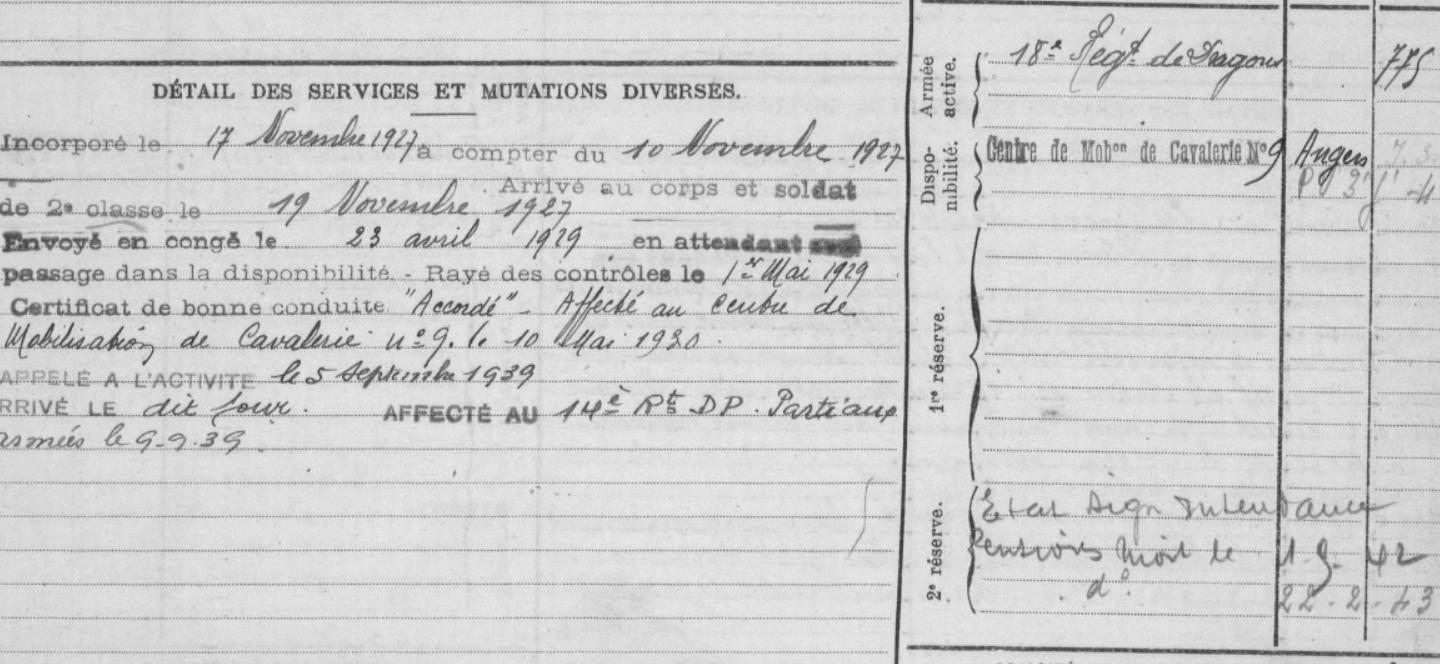 DÉTAIL DES SERVICES ET MUTATIONS DIVERSES.
Incorporé le 17 Novembre 1927 à compter du 10 Novembre 1927
Arrivé au corps et soldat
de 2e classe le 19 Novembre 1927
Envoyé en congé le 23 avril 1929 en attendant
passage dans la disponibilité. - Rayé des contrôles le 1er Mai 1929
Certificat de bonne conduite "Accordé" - Affecté au Centre de
Mobilisation de Cavalerie no 9. le 10 Mai 1930.
APPELÉ A L'ACTIVITÉ le 5 Septembre 1939
RRIVÉ LE dit jour. AFFECTÉ AU 14e Rt DP. Parti aux
armées le 9-9-39
Armée active.
18e Régt de Dragons 775
Dispo-nibilité.
Centre de Mobon de Cavalerie No 9 Angers
1re réserve.
2e réserve.
Etat Sign Intendance
Pensions Mort le 1-9-42
do. 22-2-43